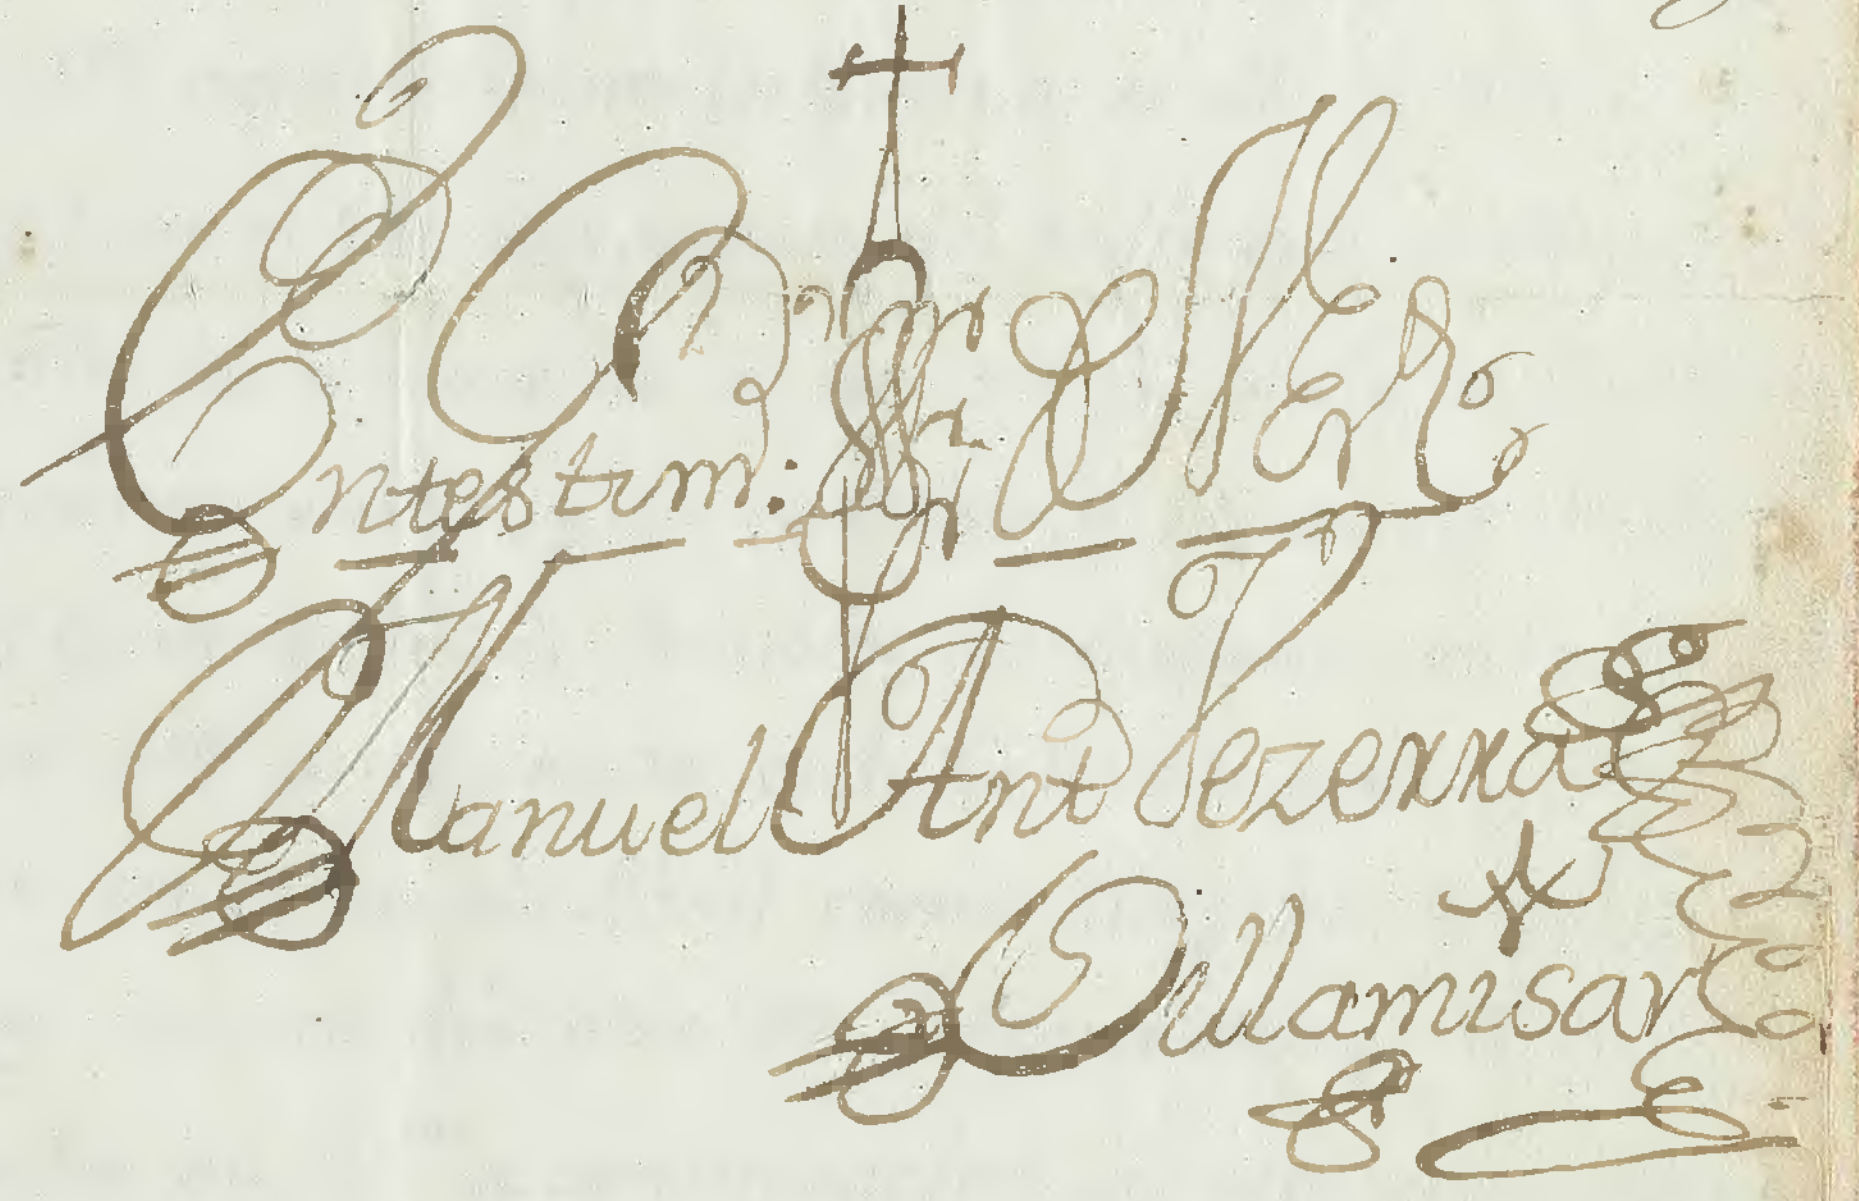 Entestim: de Ver
Manuel Ant Vezerra
Villamisar